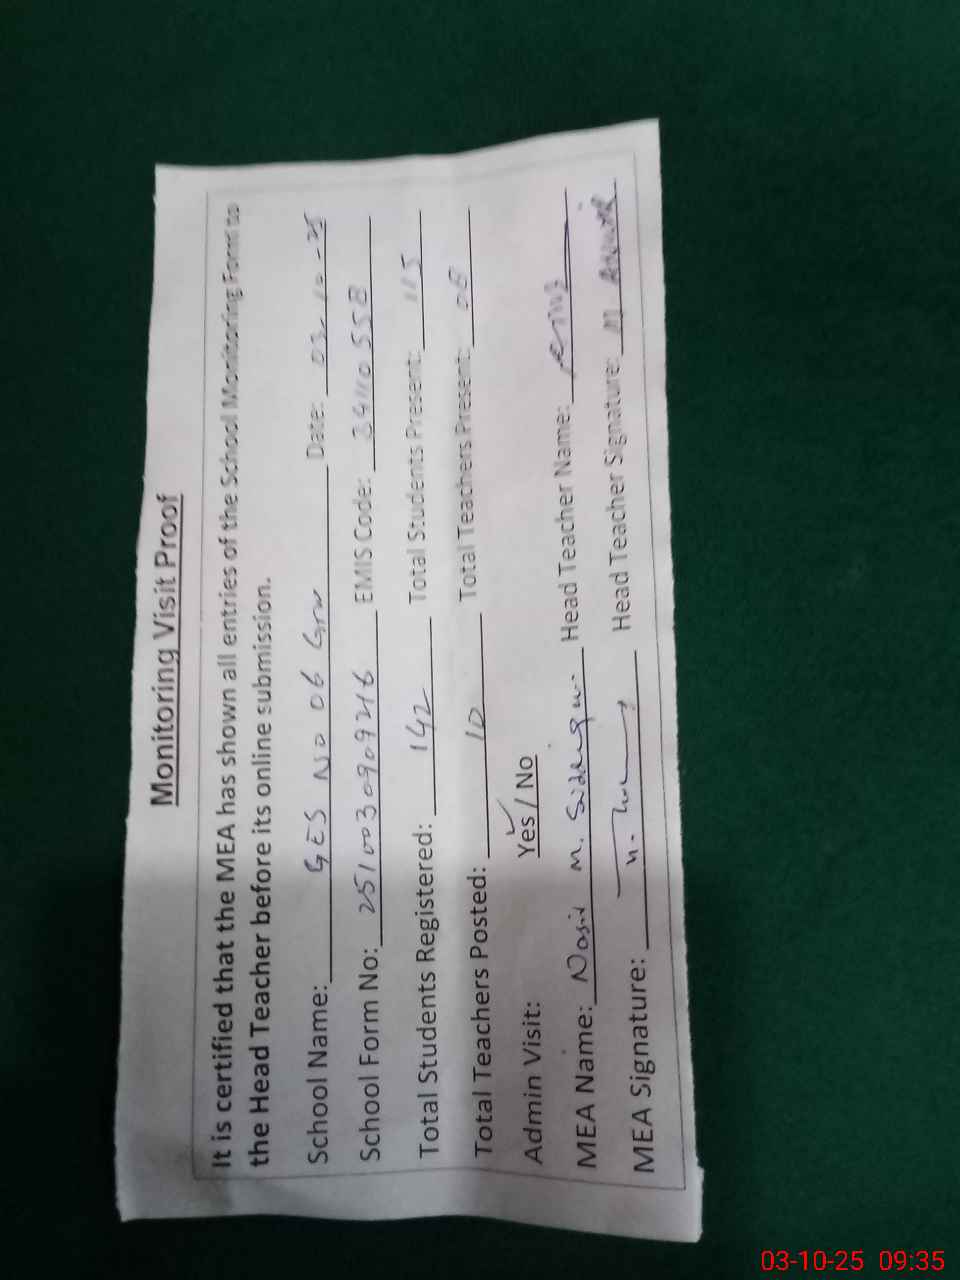 Monitoring Visit Proof
It is certified that the MEA has shown all entries of the School Monitoring Form to
the Head Teacher before its online submission.
School Name: GES No 06 Grw Date: 03-10-25
School Form No: 2510030909216 EMIS Code: 34110558
Total Students Registered: 142 Total Students Present: 115
Total Teachers Posted: 10 Total Teachers Present: 08
Admin Visit: Yes / No
MEA Name: Nasir M. Head Teacher Name:
MEA Signature: Head Teacher Signature: M
03-10-25 09:35